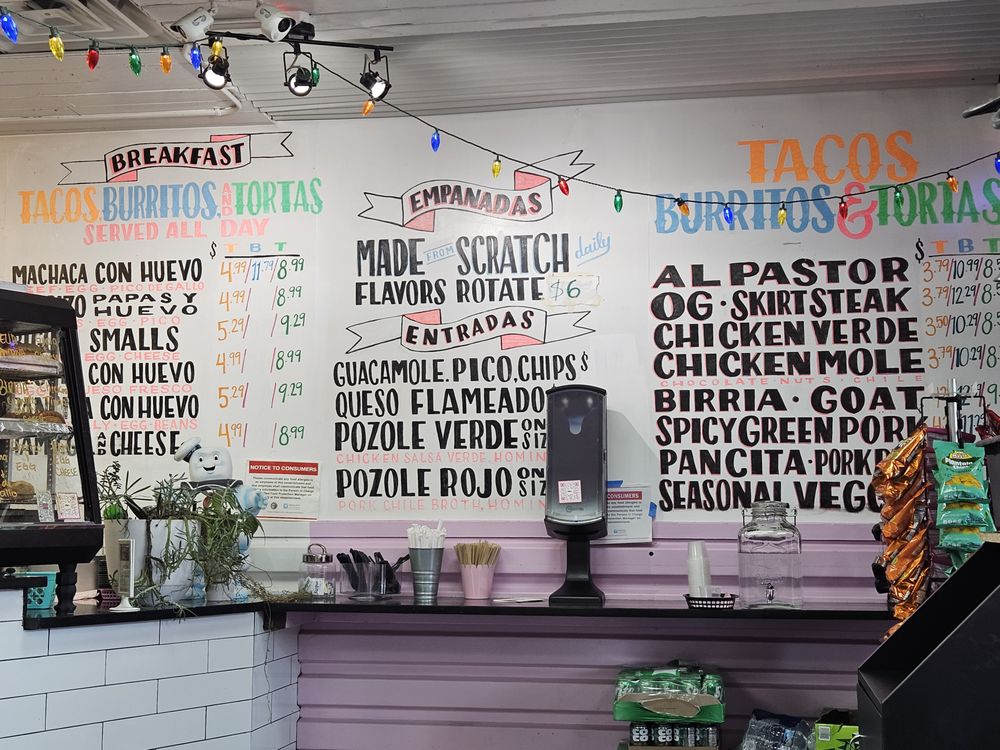 BREAKFAST
TACOS, BURRITOS, AND TORTAS
SERVED ALL DAY
$ T B T
MACHACA CON HUEVO 4.99/11.79/8.99
EGG · PICO DE GALLO
PAPAS Y
HUEVO 4.99/ 8.99
EGG · PICO
SMALLS 5.29/ 9.29
EGG · CHEESE
CON HUEVO 4.99/ 8.99
QUESO FRESCO
CON HUEVO 5.29/ 9.29
EGG · BEANS
AND CHEESE 4.99/ 8.99
NOTICE TO CONSUMERS
EMPANADAS
MADE FROM SCRATCH daily
FLAVORS ROTATE $6
ENTRADAS
GUACAMOLE, PICO, CHIPS $
QUESO FLAMEADO
POZOLE VERDE ON
CHICKEN SALSA VERDE, HOMIN
POZOLE ROJO ON
PORK CHILE BROTH, HOMIN
CONSUMERS
TACOS
BURRITOS & TORTAS
$ T B T
AL PASTOR 3.79/10.99/8.5
OG · SKIRT STEAK 3.79/12.29/8.5
CHICKEN VERDE 3.50/10.29/8.5
CHICKEN MOLE 3.79/10.29/8
CHOCOLATE · NUTS · CHILE
BIRRIA · GOAT
SPICY GREEN PORK
PANCITA · PORK
SEASONAL VEGG
EGG
EGG